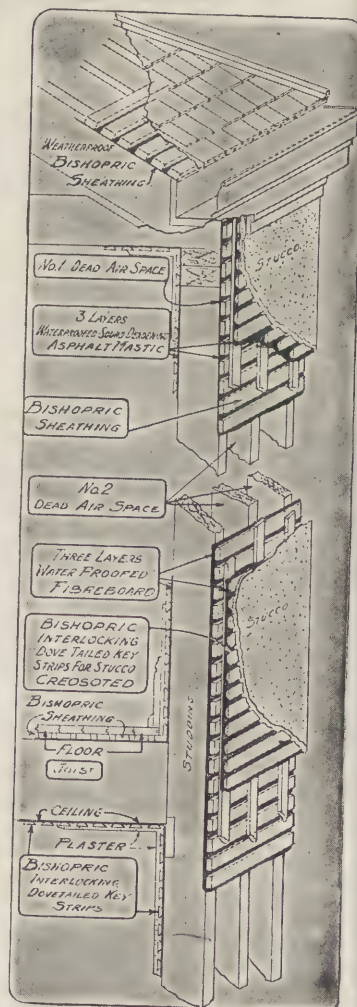 WEATHERPROOF
BISHOPRIC
SHEATHING
STUCCO
NO. 1 DEAD AIR SPACE
3 LAYERS
WATERPROOFED SOUND DEADENING
ASPHALT MASTIC
BISHOPRIC
SHEATHING
No. 2
DEAD AIR SPACE
THREE LAYERS
WATER PROOFED
FIBREBOARD
STUCCO
BISHOPRIC
INTERLOCKING
DOVE TAILED KEY
STRIPS FOR STUCCO
CREOSOTED
STUDDING
BISHOPRIC
SHEATHING
FLOOR
JOIST
CEILING
PLASTER
BISHOPRIC
INTERLOCKING
DOVETAILED KEY
STRIPS